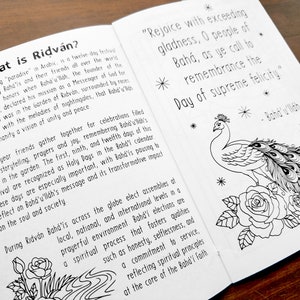 at is Ridván?
"paradise" in Arabic, is a twelve-day festival
Bahá'ís and their friends all over the world
honors when Bahá'u'lláh, the founder of the
declared his mission as a Messenger of God for
was in the Garden of Ridván, surrounded by roses
with the melodies of nightingales, that Bahá'u'lláh
humanity a vision of unity and peace.
year friends gather together for celebrations filled
storytelling, prayers and joy, remembering Bahá'u'lláh's
the garden. The first, ninth, and twelfth days of this
festival are recognized as Holy Days in the Bahá'í calendar.
these days are especially important, with devotions that
reflect on Bahá'u'lláh's message and its transformative impact
on the soul and society.
During Ridván Bahá'ís across the globe elect assemblies at
local, national, and international levels in a
prayerful environment. Bahá'í elections are
a spiritual process that fosters qualities
such as honesty, selflessness, and
a commitment to service,
reflecting spiritual principles
at the core of the Bahá'í Faith
"Rejoice with exceeding
gladness, O people of
Bahá, as ye call to
remembrance the
Day of supreme felicity"
- Bahá'u'lláh